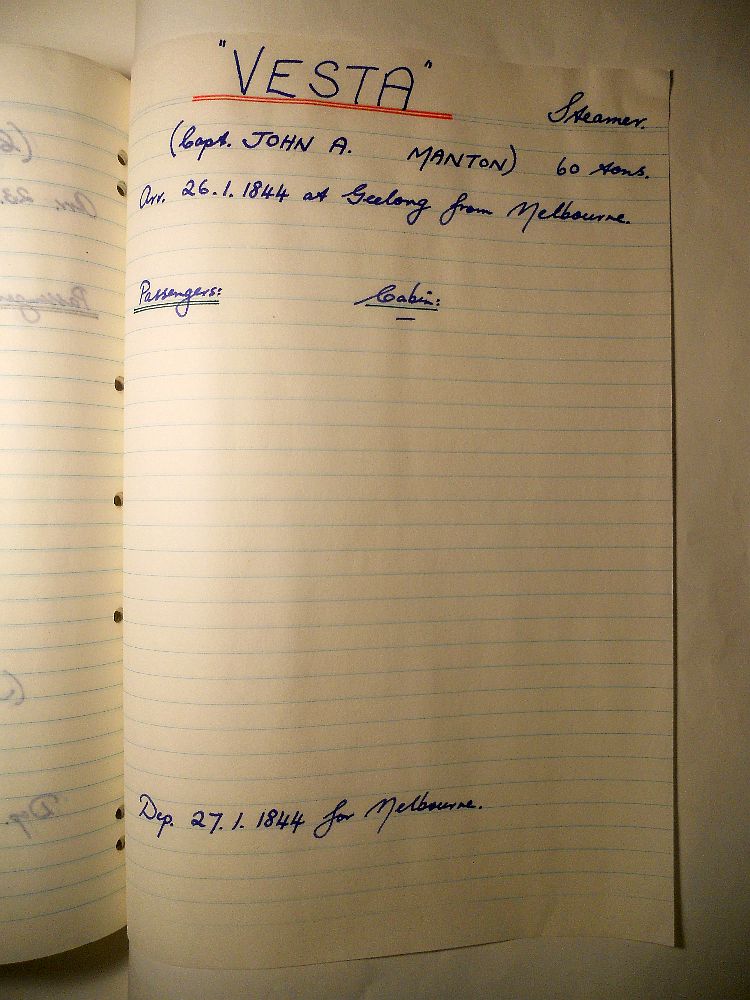 "VESTA"
Steamer.
(Capt. JOHN A. MANTON) 60 tons.
Arr. 26.1.1844 at Geelong from Melbourne.
Passengers: Cabin:
—
Dep. 27.1.1844 for Melbourne.